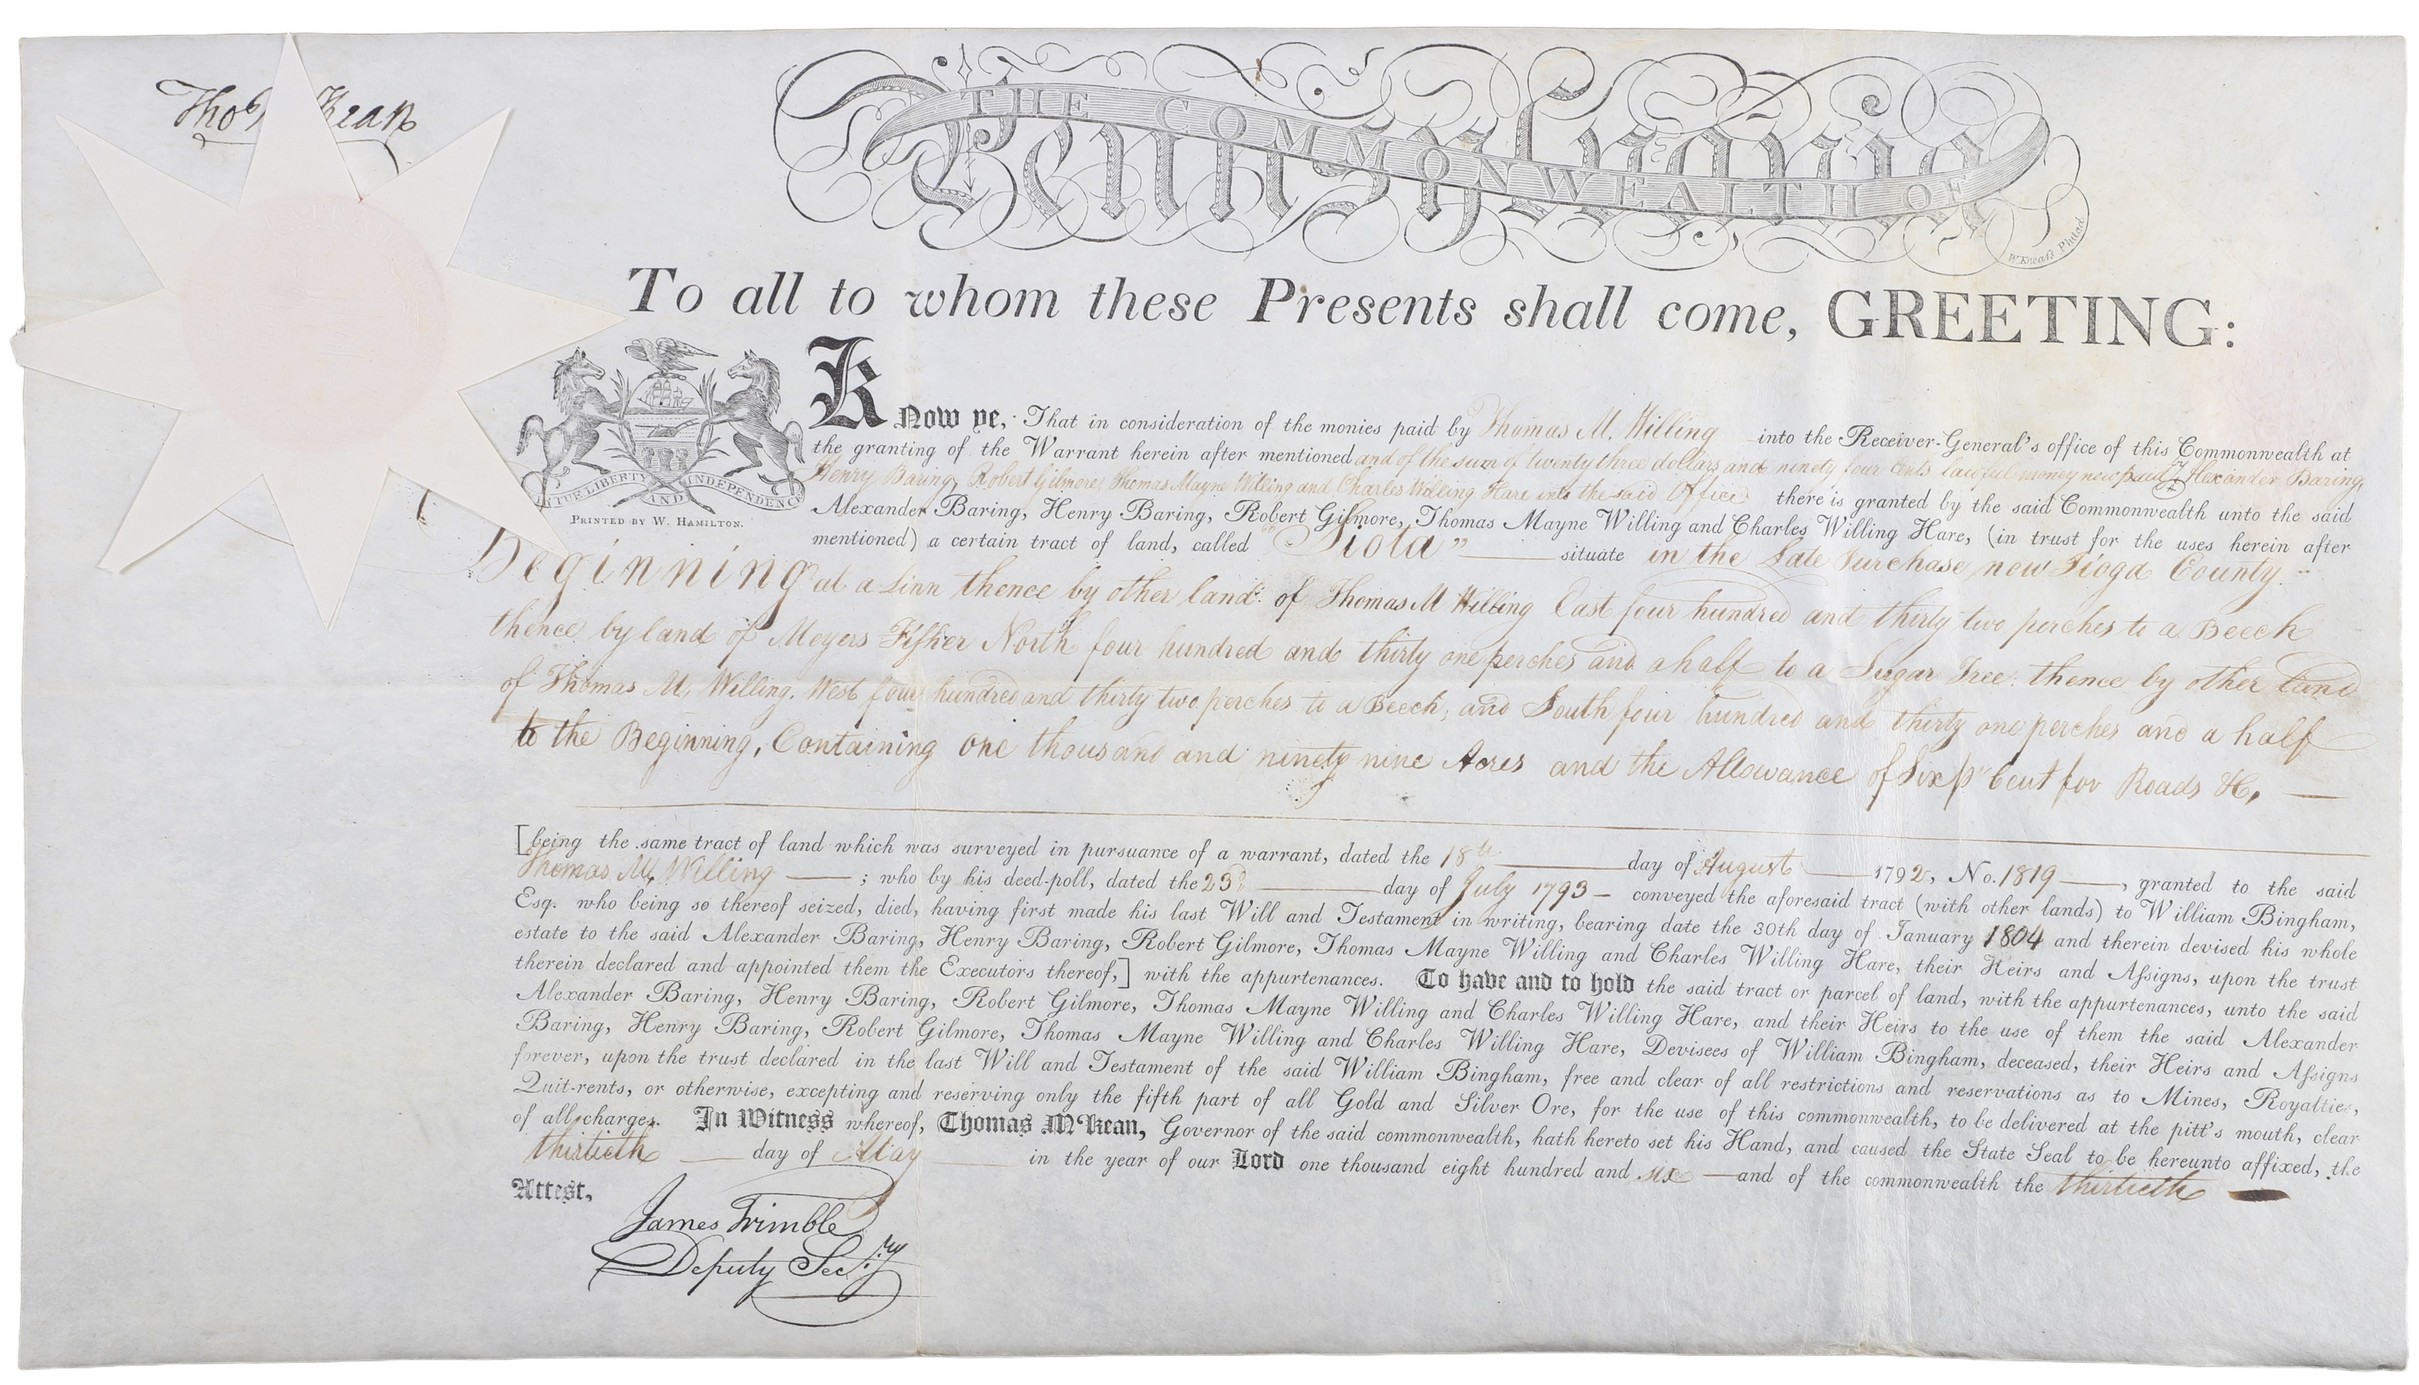 Thos Kean
THE COMMONWEALTH OF
Pennsylvania
W. Kneass Philad
To all to whom these Presents shall come, GREETING:
VIRTUE LIBERTY AND INDEPENDENCE
PRINTED BY W. HAMILTON.
Know ye, That in consideration of the monies paid by Thomas M. Willing into the Receiver-General's office of this Commonwealth at
the granting of the Warrant herein after mentioned and of the sum of twenty three dollars and ninety four cents lawful money now paid by Alexander Baring,
Henry Baring, Robert Gilmore, Thomas Mayne Willing and Charles Willing Hare into the said Office there is granted by the said Commonwealth unto the said
Alexander Baring, Henry Baring, Robert Gilmore, Thomas Mayne Willing and Charles Willing Hare, (in trust for the uses herein after
mentioned) a certain tract of land, called "Fiola" situate in the Late Purchase now Tioga County.
Beginning at a Linn thence by other land of Thomas M Willing East four hundred and thirty two perches to a Beech
thence by land of Meyers Fisher North four hundred and thirty one perches and a half to a Sugar Tree: thence by other land
of Thomas M. Willing. West four hundred and thirty two perches to a Beech, and South four hundred and thirty one perches and a half
to the Beginning, Containing one thousand and ninety nine Acres and the Allowance of Six pr Cent for Roads &c,
[being the same tract of land which was surveyed in pursuance of a warrant, dated the 18th day of August 1792, No. 1819, granted to the said
Thomas M. Willing ; who by his deed-poll, dated the 23d day of July 1793 conveyed the aforesaid tract (with other lands) to William Bingham,
Esq. who being so thereof seized, died, having first made his last Will and Testament in writing, bearing date the 30th day of January 1804 and therein devised his whole
estate to the said Alexander Baring, Henry Baring, Robert Gilmore, Thomas Mayne Willing and Charles Willing Hare, their Heirs and Assigns, upon the trust
therein declared and appointed them the Executors thereof,] with the appurtenances. To have and to hold the said tract or parcel of land, with the appurtenances, unto the said
Alexander Baring, Henry Baring, Robert Gilmore, Thomas Mayne Willing and Charles Willing Hare, and their Heirs to the use of them the said Alexander
Baring, Henry Baring, Robert Gilmore, Thomas Mayne Willing and Charles Willing Hare, Devisees of William Bingham, deceased, their Heirs and Assigns
forever, upon the trust declared in the last Will and Testament of the said William Bingham, free and clear of all restrictions and reservations as to Mines, Royalties,
Quit-rents, or otherwise, excepting and reserving only the fifth part of all Gold and Silver Ore, for the use of this commonwealth, to be delivered at the pitt's mouth, clear
of all charges. In Witness whereof, Thomas M'Kean, Governor of the said commonwealth, hath hereto set his Hand, and caused the State Seal to be hereunto affixed, the
thirtieth day of May in the year of our Lord one thousand eight hundred and six and of the commonwealth the thirtieth
Attest,
James Trimble
Deputy Secy